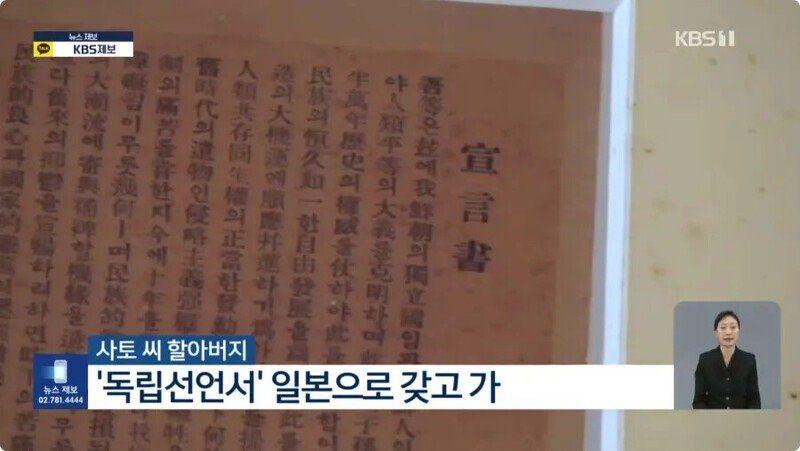 뉴스 제보
TALK KBS제보
KBS 1
宣言書
吾等은玆에我鮮朝의獨立國임
야人類平等의大義를克明하며
半萬年歷史의權威를仗하야此를
民族의恒久如一한自由發展을
造의大機運에順應幷進하기爲
人類共存同生權의正當한發動
舊時代의遺物인侵略主義强
制의痛苦를嘗한지今에十年을
障礙됨이무릇幾何ㅣ며民族的
의大潮流에寄與補裨할機緣을遺
라舊來의抑鬱을宣暢하려하면
民族的良心과國家的
사토 씨 할아버지
'독립선언서' 일본으로 갖고 가
뉴스 제보
02.781.4444